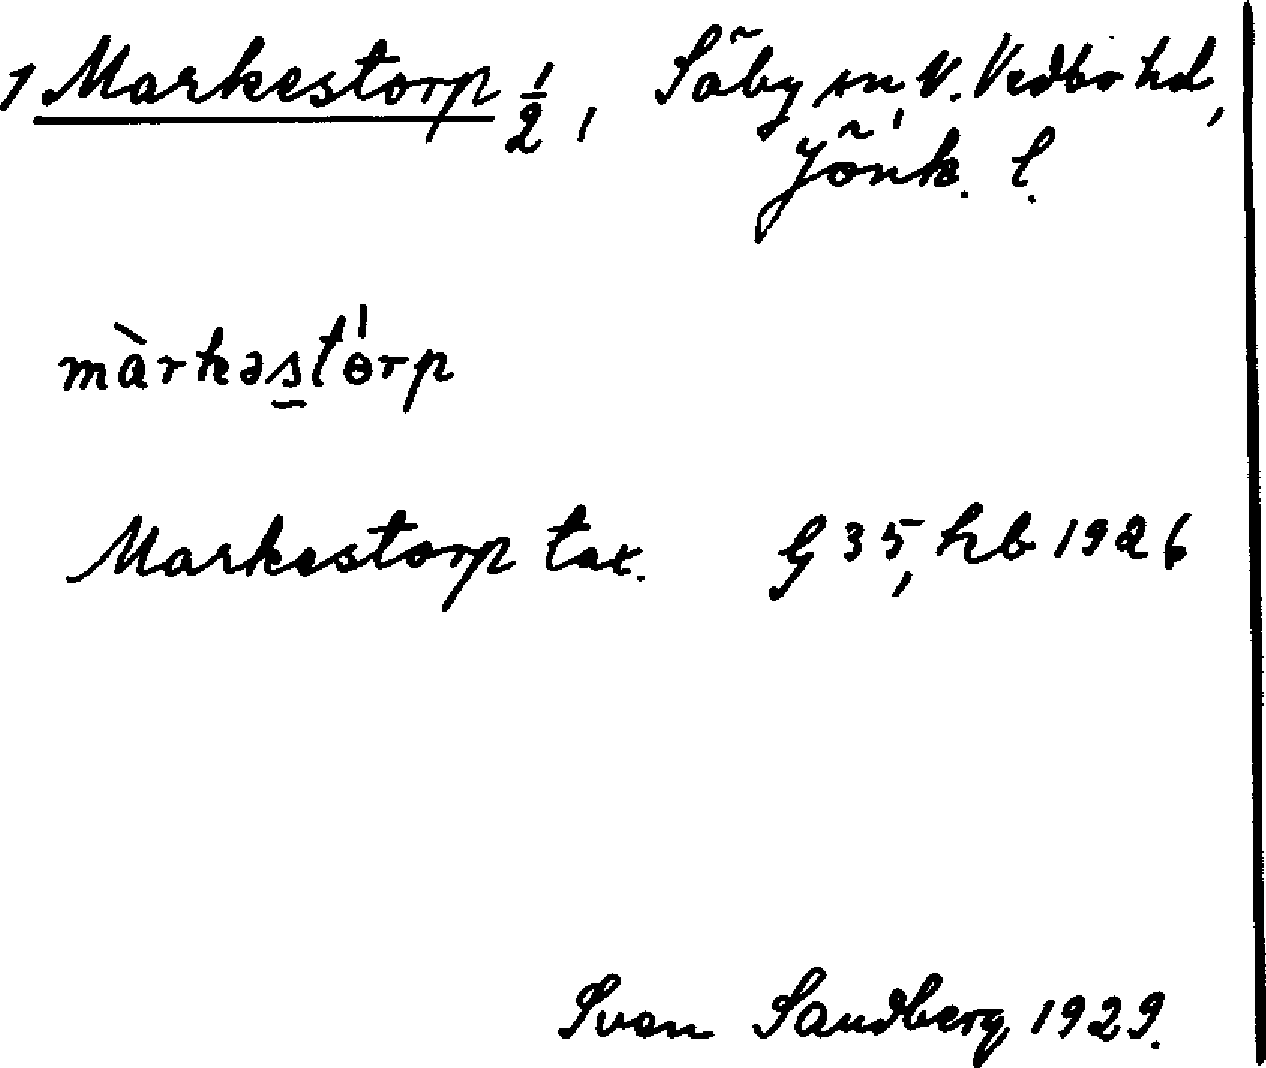 1 Markestorp 1/2, Säby sn, V. Vedbo hd,
Jönk. l.
màrkəst́ɵrp
Markestorp tax. G 35, hb 1926
Sven Sandberg 1929.